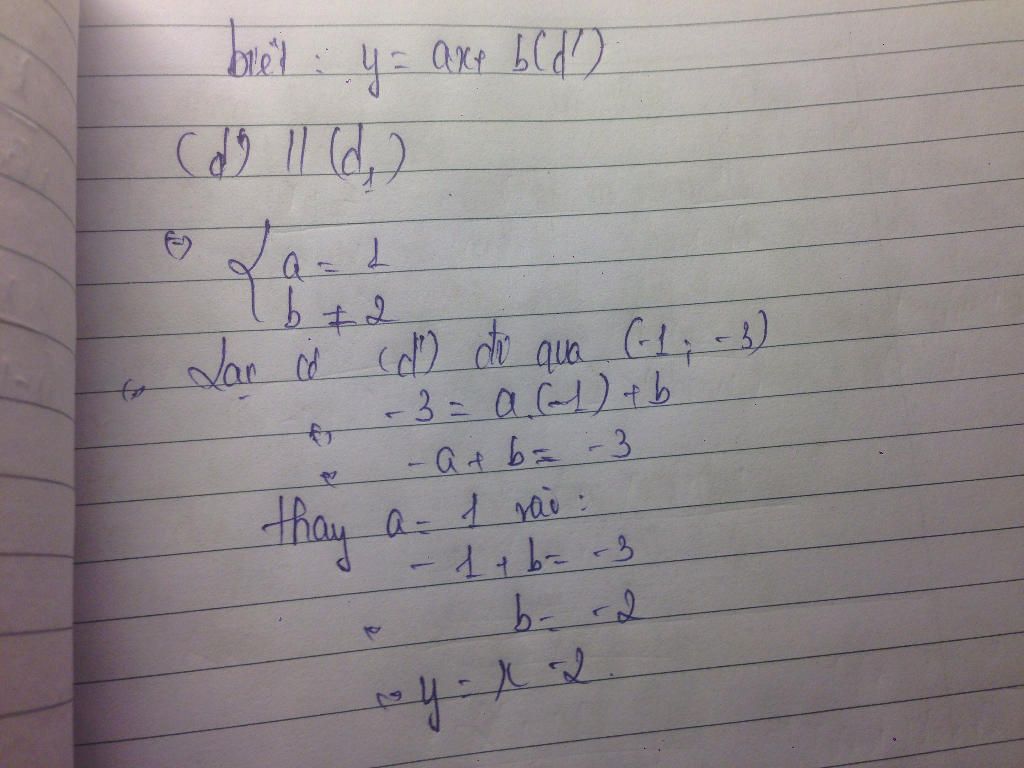 biết : y = ax + b (d')
(d') // (d₁)
⇔ { a = 1
b ≠ 2
⇔ Lại có (d') đi qua (-1 ; -3)
⇔ -3 = a.(-1) + b
⇔ -a + b = -3
thay a = 1 vào :
-1 + b = -3
⇔ b = -2
⇔ y = x - 2.